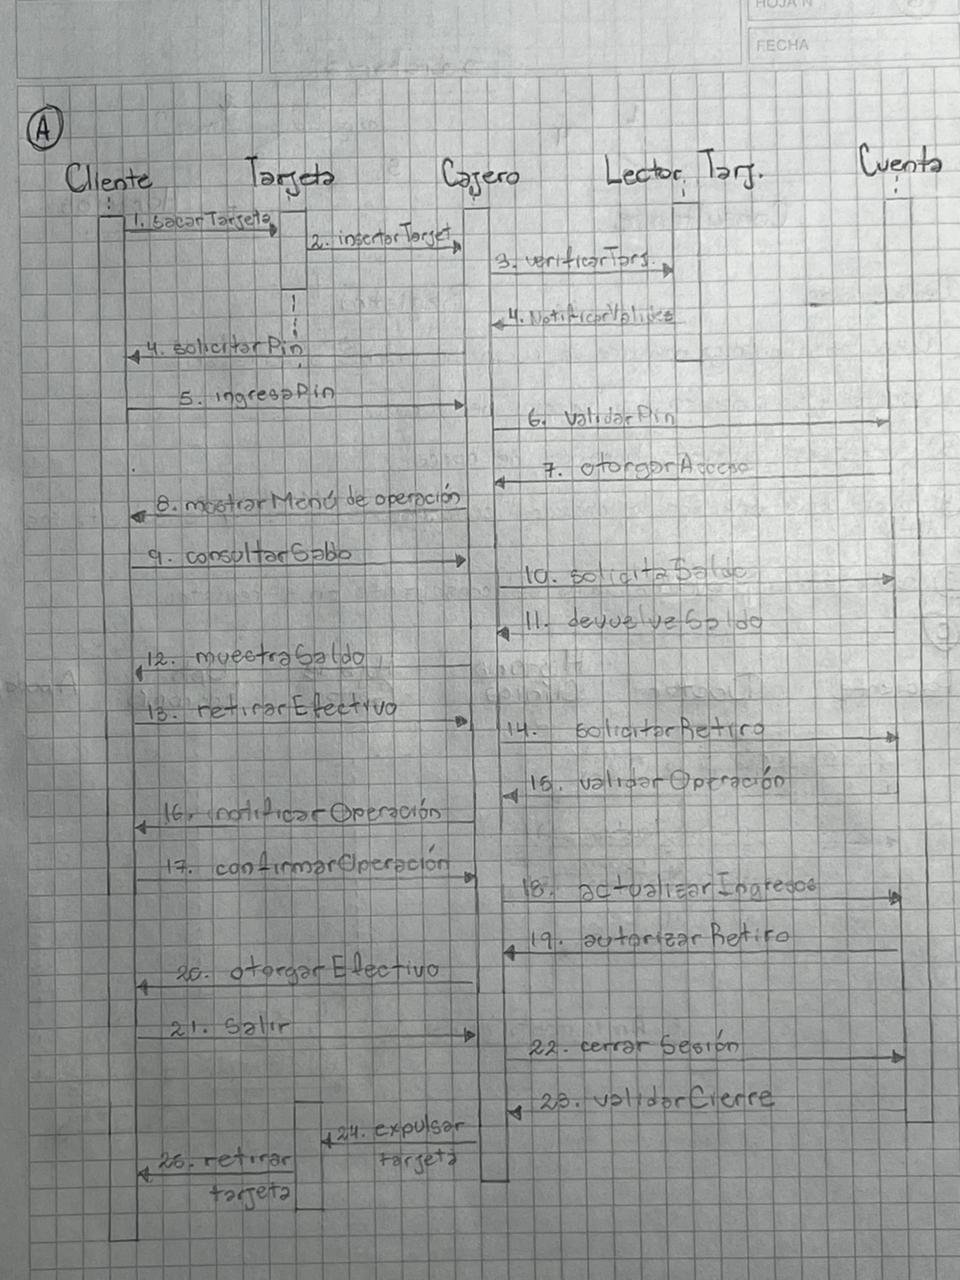 HOJA N
FECHA
A
Cliente Tarjeta Cajero Lector Tarj. Cuenta
1. sacarTarjeta
2. insertarTarjet
3. verificarTarj.
4. NotificarValidez
4. solicitarPin
5. ingresaPin
6. validarPin
7. otorgarAcceso
8. mostrarMenú de operación
9. consultarSaldo
10. solicitaSaldo
11. devuelveSaldo
12. muestraSaldo
13. retirarEfectivo
14. solicitarRetiro
15. validarOperación
16. notificarOperación
17. confirmarOperación
18. actualizarIngresos
19. autorizarRetiro
20. otorgarEfectivo
21. Salir
22. cerrar Sesión
23. validarCierre
24. expulsar
tarjeta
25. retirar
tarjeta